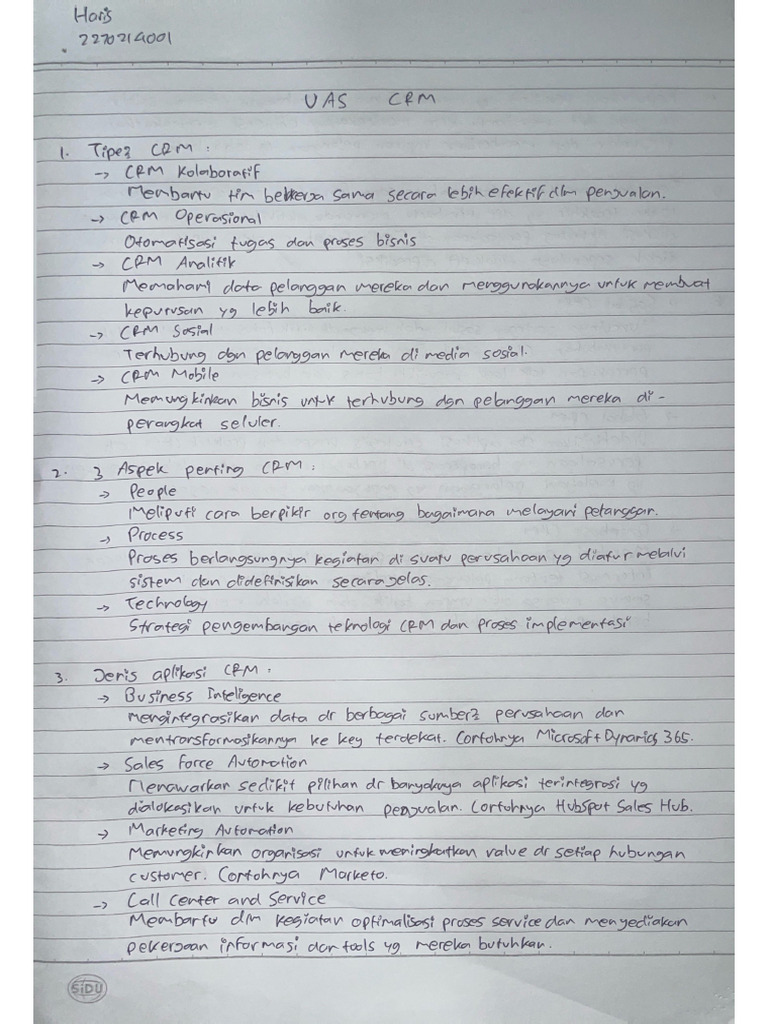 Haris
2270214001
UAS CRM
1. Tipe2 CRM :
-> CRM Kolaboratif
Membantu tim bekerja sama secara lebih efektif dlm penjualan.
-> CRM Operasional
Otomatisasi tugas dan proses bisnis
-> CRM Analitik
Memahami data pelanggan mereka dan menggunakannya untuk membuat
kepurusan yg lebih baik.
-> CRM Sosial
Terhubung dgn pelanggan mereka di media sosial.
-> CRM Mobile
Memungkinkan bisnis untuk terhubung dgn pelanggan mereka di-
perangkat seluler.
2. 3 Aspek penting CRM :
-> People
Meliputi cara berpikir org tentang bagaimana melayani pelanggan.
-> Process
Proses berlangsungnya kegiatan di suatu perusahaan yg diatur melalui
sistem dan didefinisikan secara jelas.
-> Technology
Strategi pengembangan teknologi CRM dan proses implementasi
3. Jenis aplikasi CRM :
-> Business Inteligence
Mengintegrasikan data dr berbagai sumber2 perusahaan dan
mentransformasikannya ke key terdekat. Contohnya Microsoft Dynamics 365.
-> Sales Force Automation
Menawarkan sedikit pilihan dr banyaknya aplikasi terintegrasi yg
dialokasikan untuk kebutuhan penjualan. Contohnya HubSpot Sales Hub.
-> Marketing Automation
Memungkinkan organisasi untuk meningkatkan value dr setiap hubungan
customer. Contohnya Marketo.
-> Call Center and Service
Membantu dlm kegiatan optimalisasi proses service dan menyediakan
pekerjaan informasi dan tools yg mereka butuhkan.
SiDU